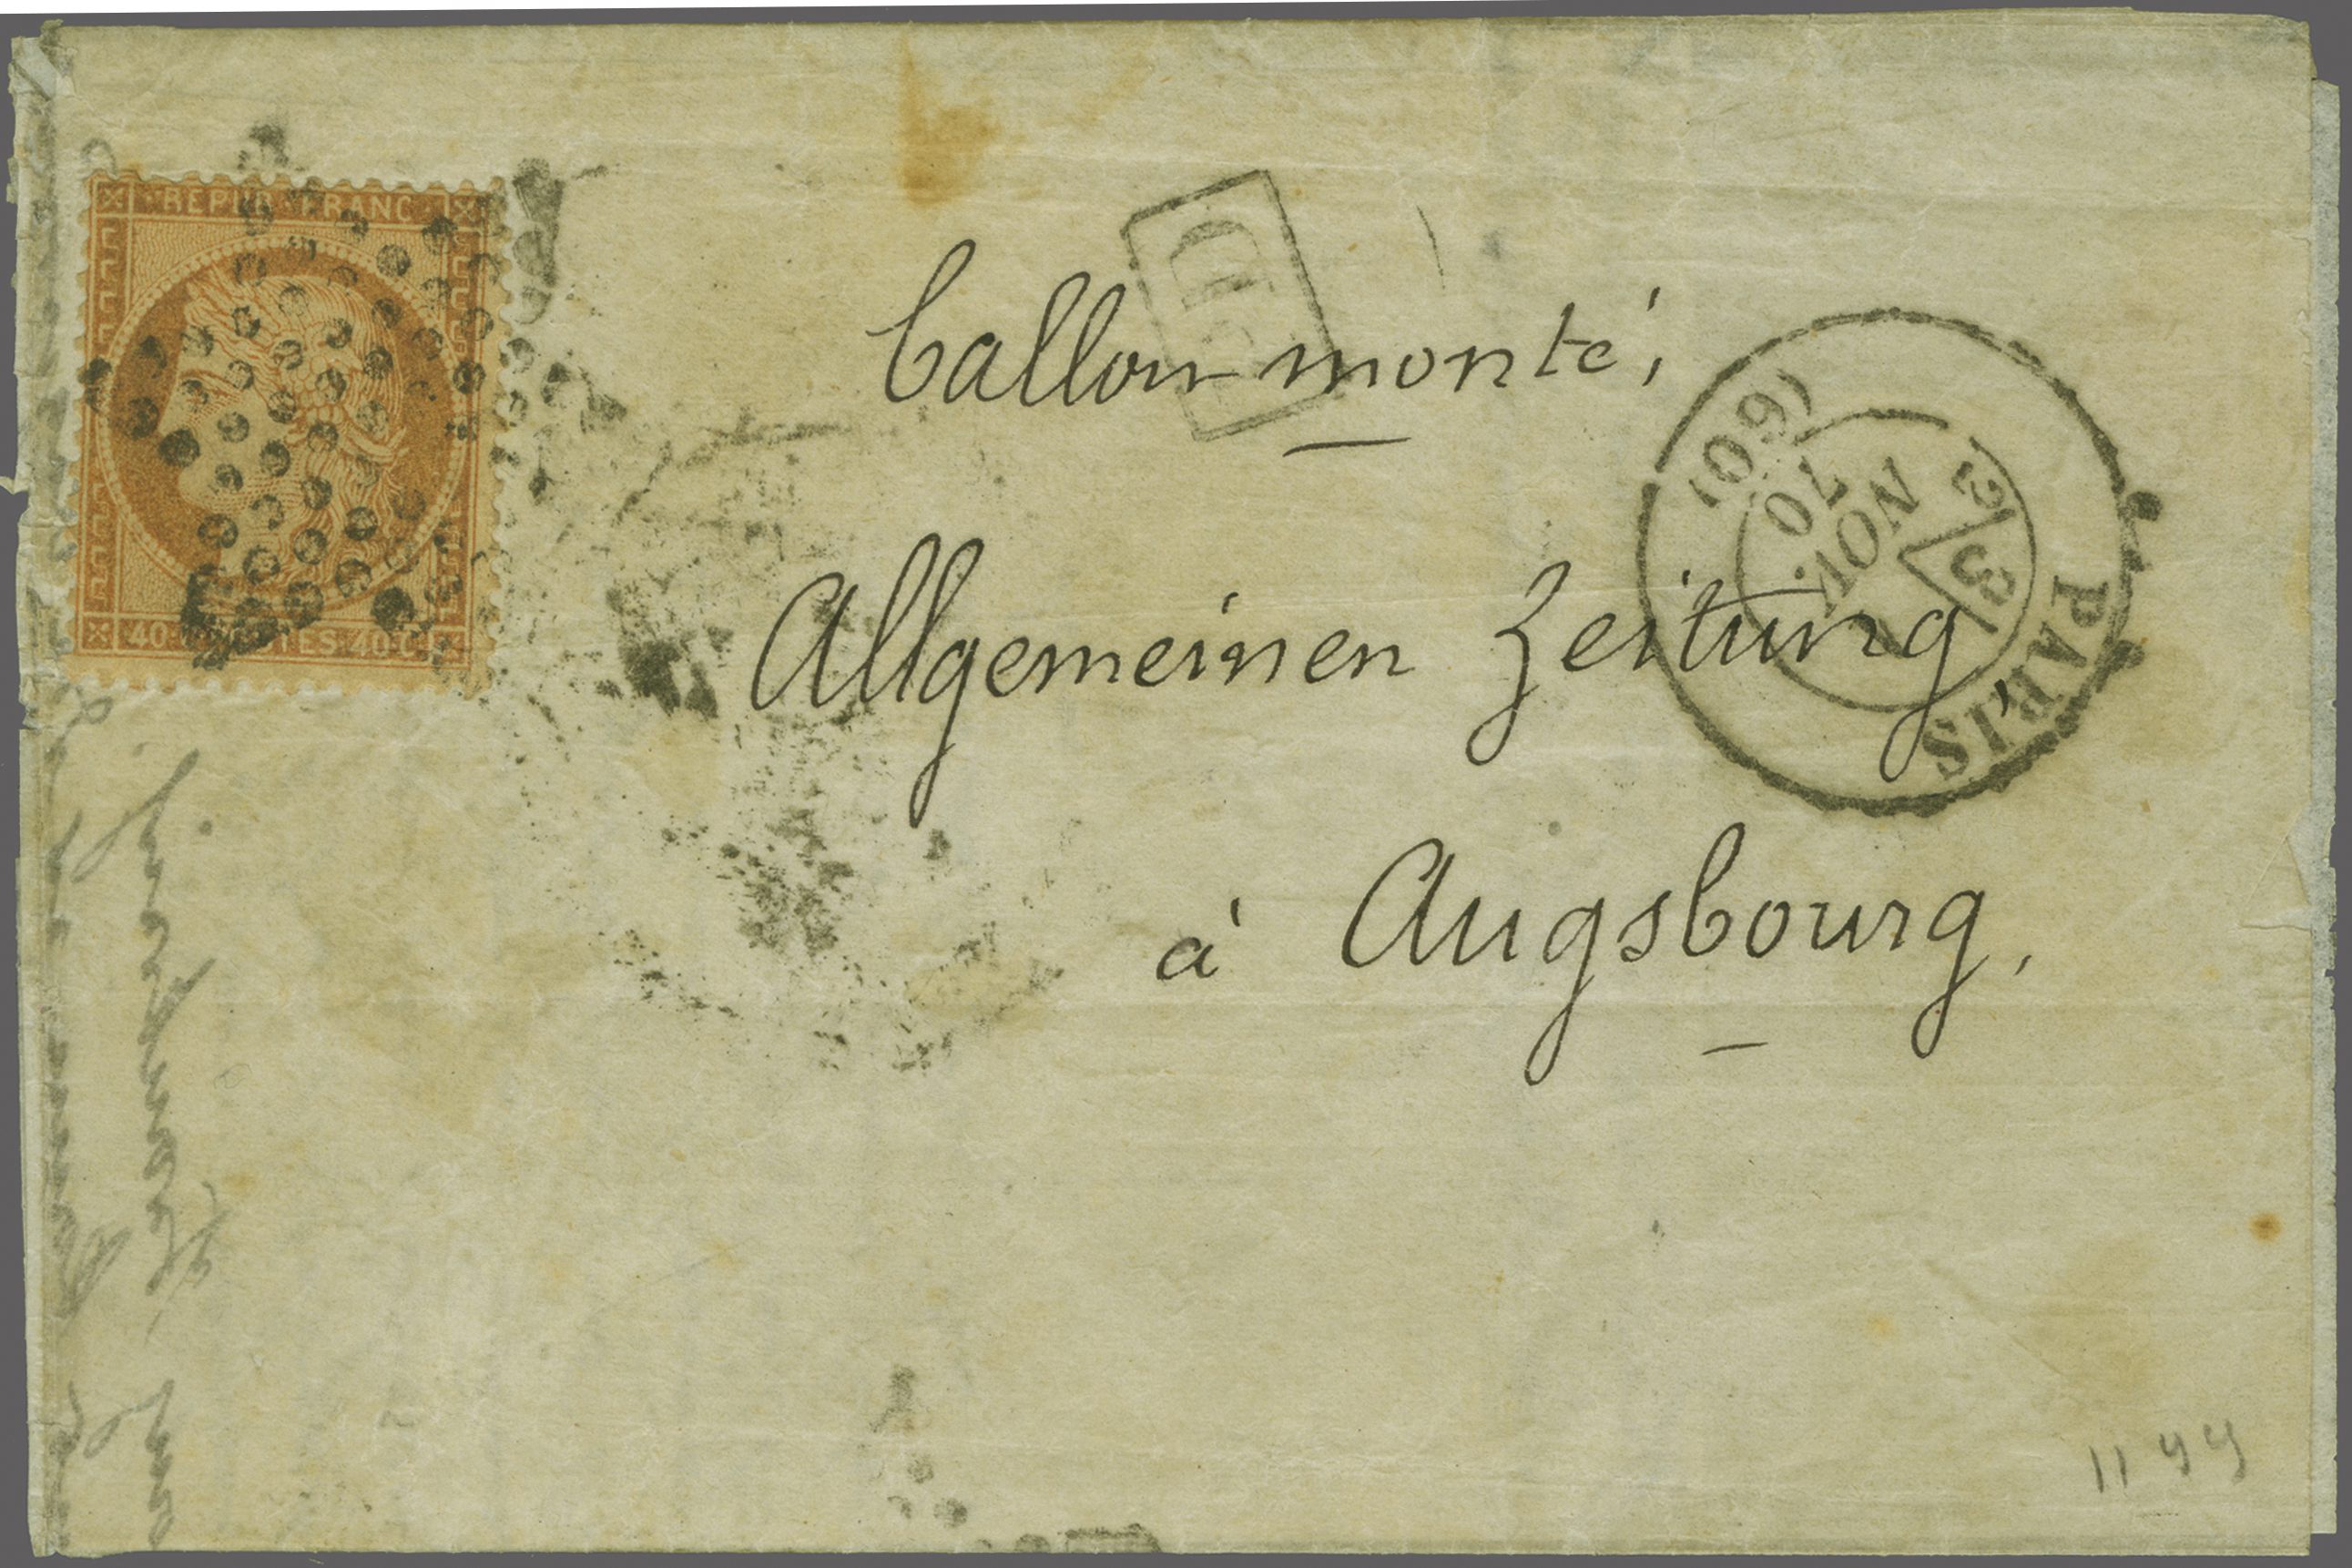 REPUB FRANC
40 C POSTES 40 C
PD
ballon monté,
PARIS
2
/3
NOV.
70
(60)
Allgemeinen Zeitung,
à Augsbourg.
1199